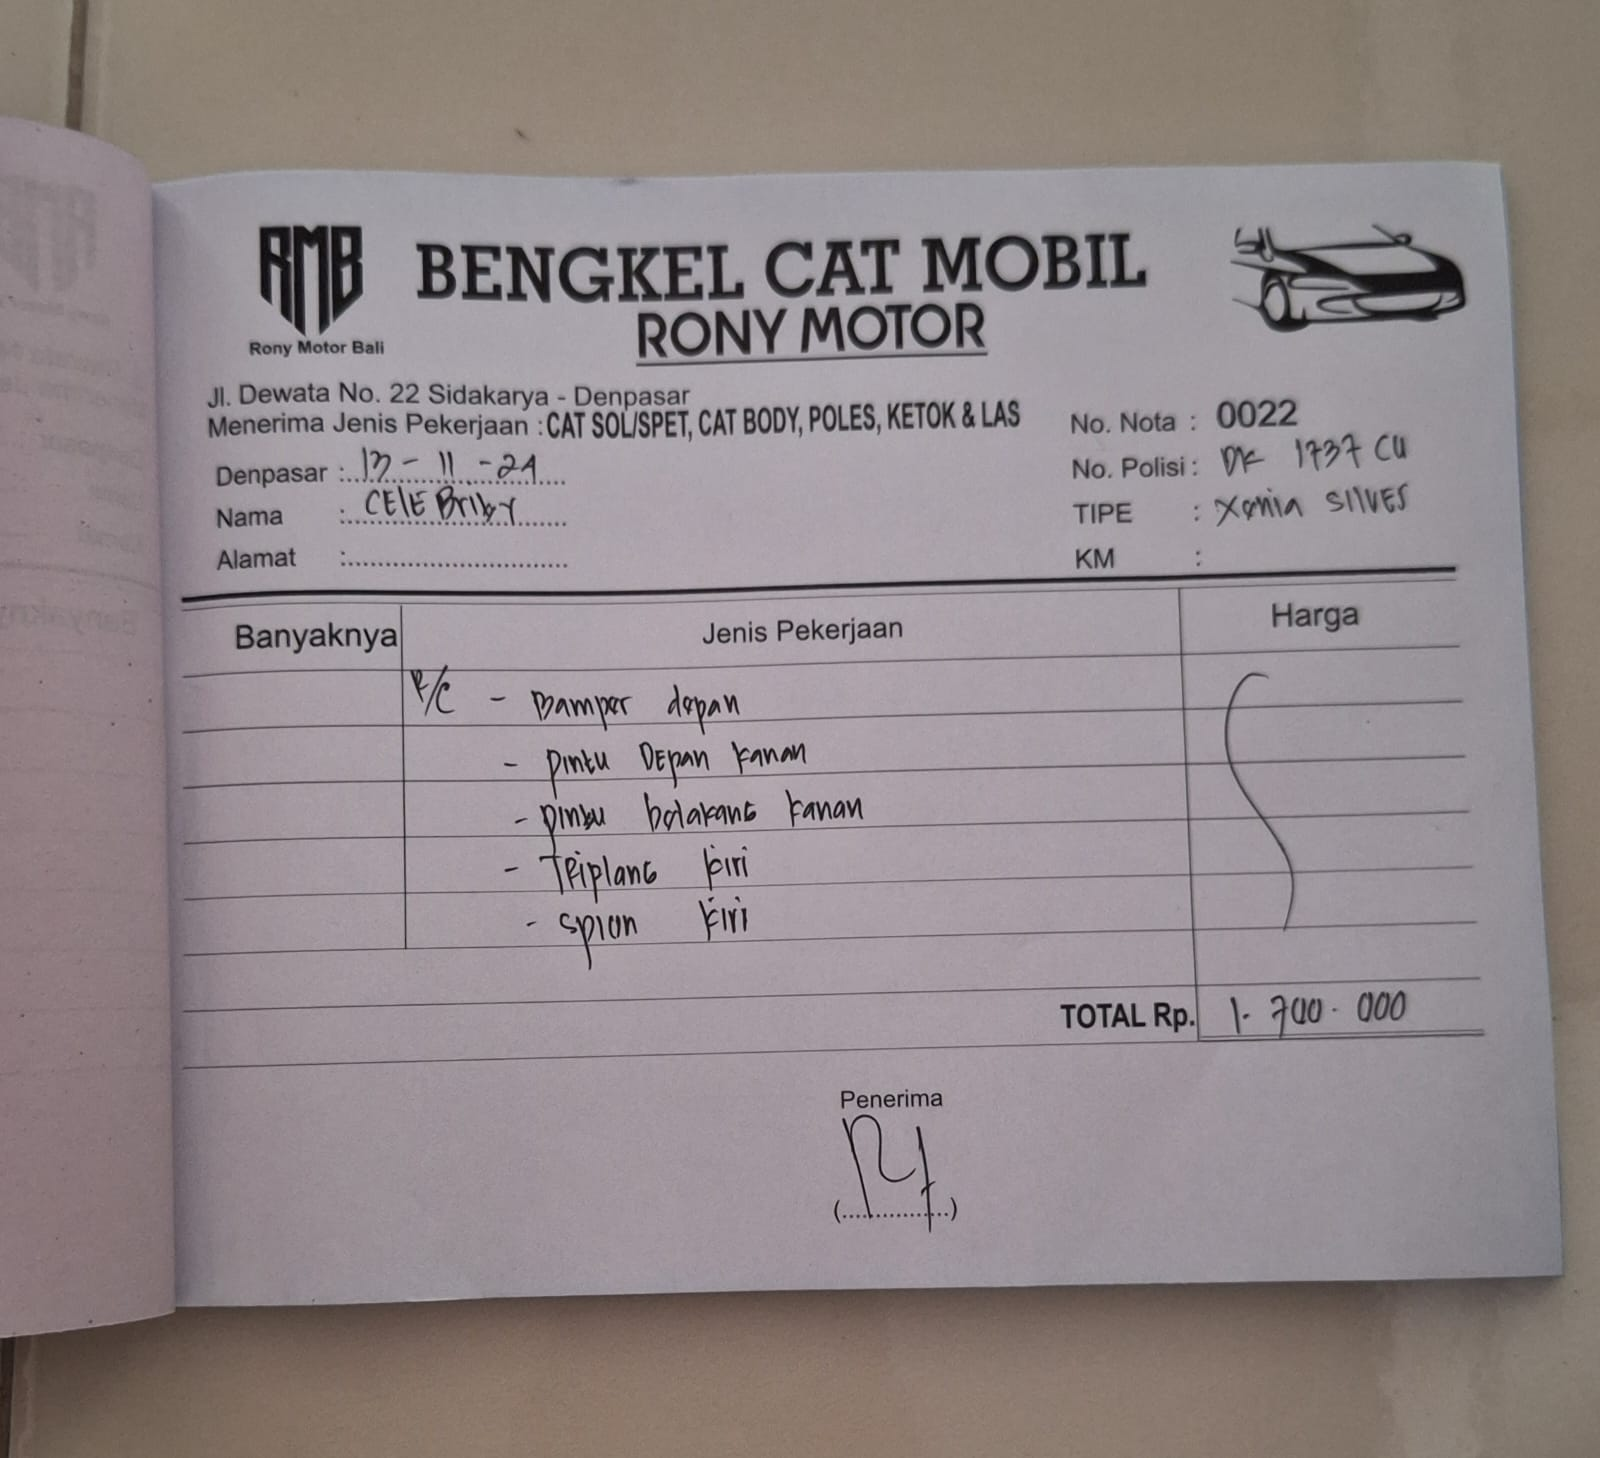 RMB
Rony Motor Bali
BENGKEL CAT MOBIL
RONY MOTOR
Jl. Dewata No. 22 Sidakarya - Denpasar
Menerima Jenis Pekerjaan : CAT SOL/SPET, CAT BODY, POLES, KETOK & LAS
No. Nota : 0022
Denpasar : 13 - 11 - 24
No. Polisi : DK 1737 CU
Nama : CELEBriby
TIPE : Xenia SILVES
Alamat :
KM :
Banyaknya Jenis Pekerjaan Harga
R/C - Bamper depan
- Pintu DEpan kanan
- pintu belakang kanan
- TRiplang kiri
- spion kiri
TOTAL Rp. 1.700.000
Penerima